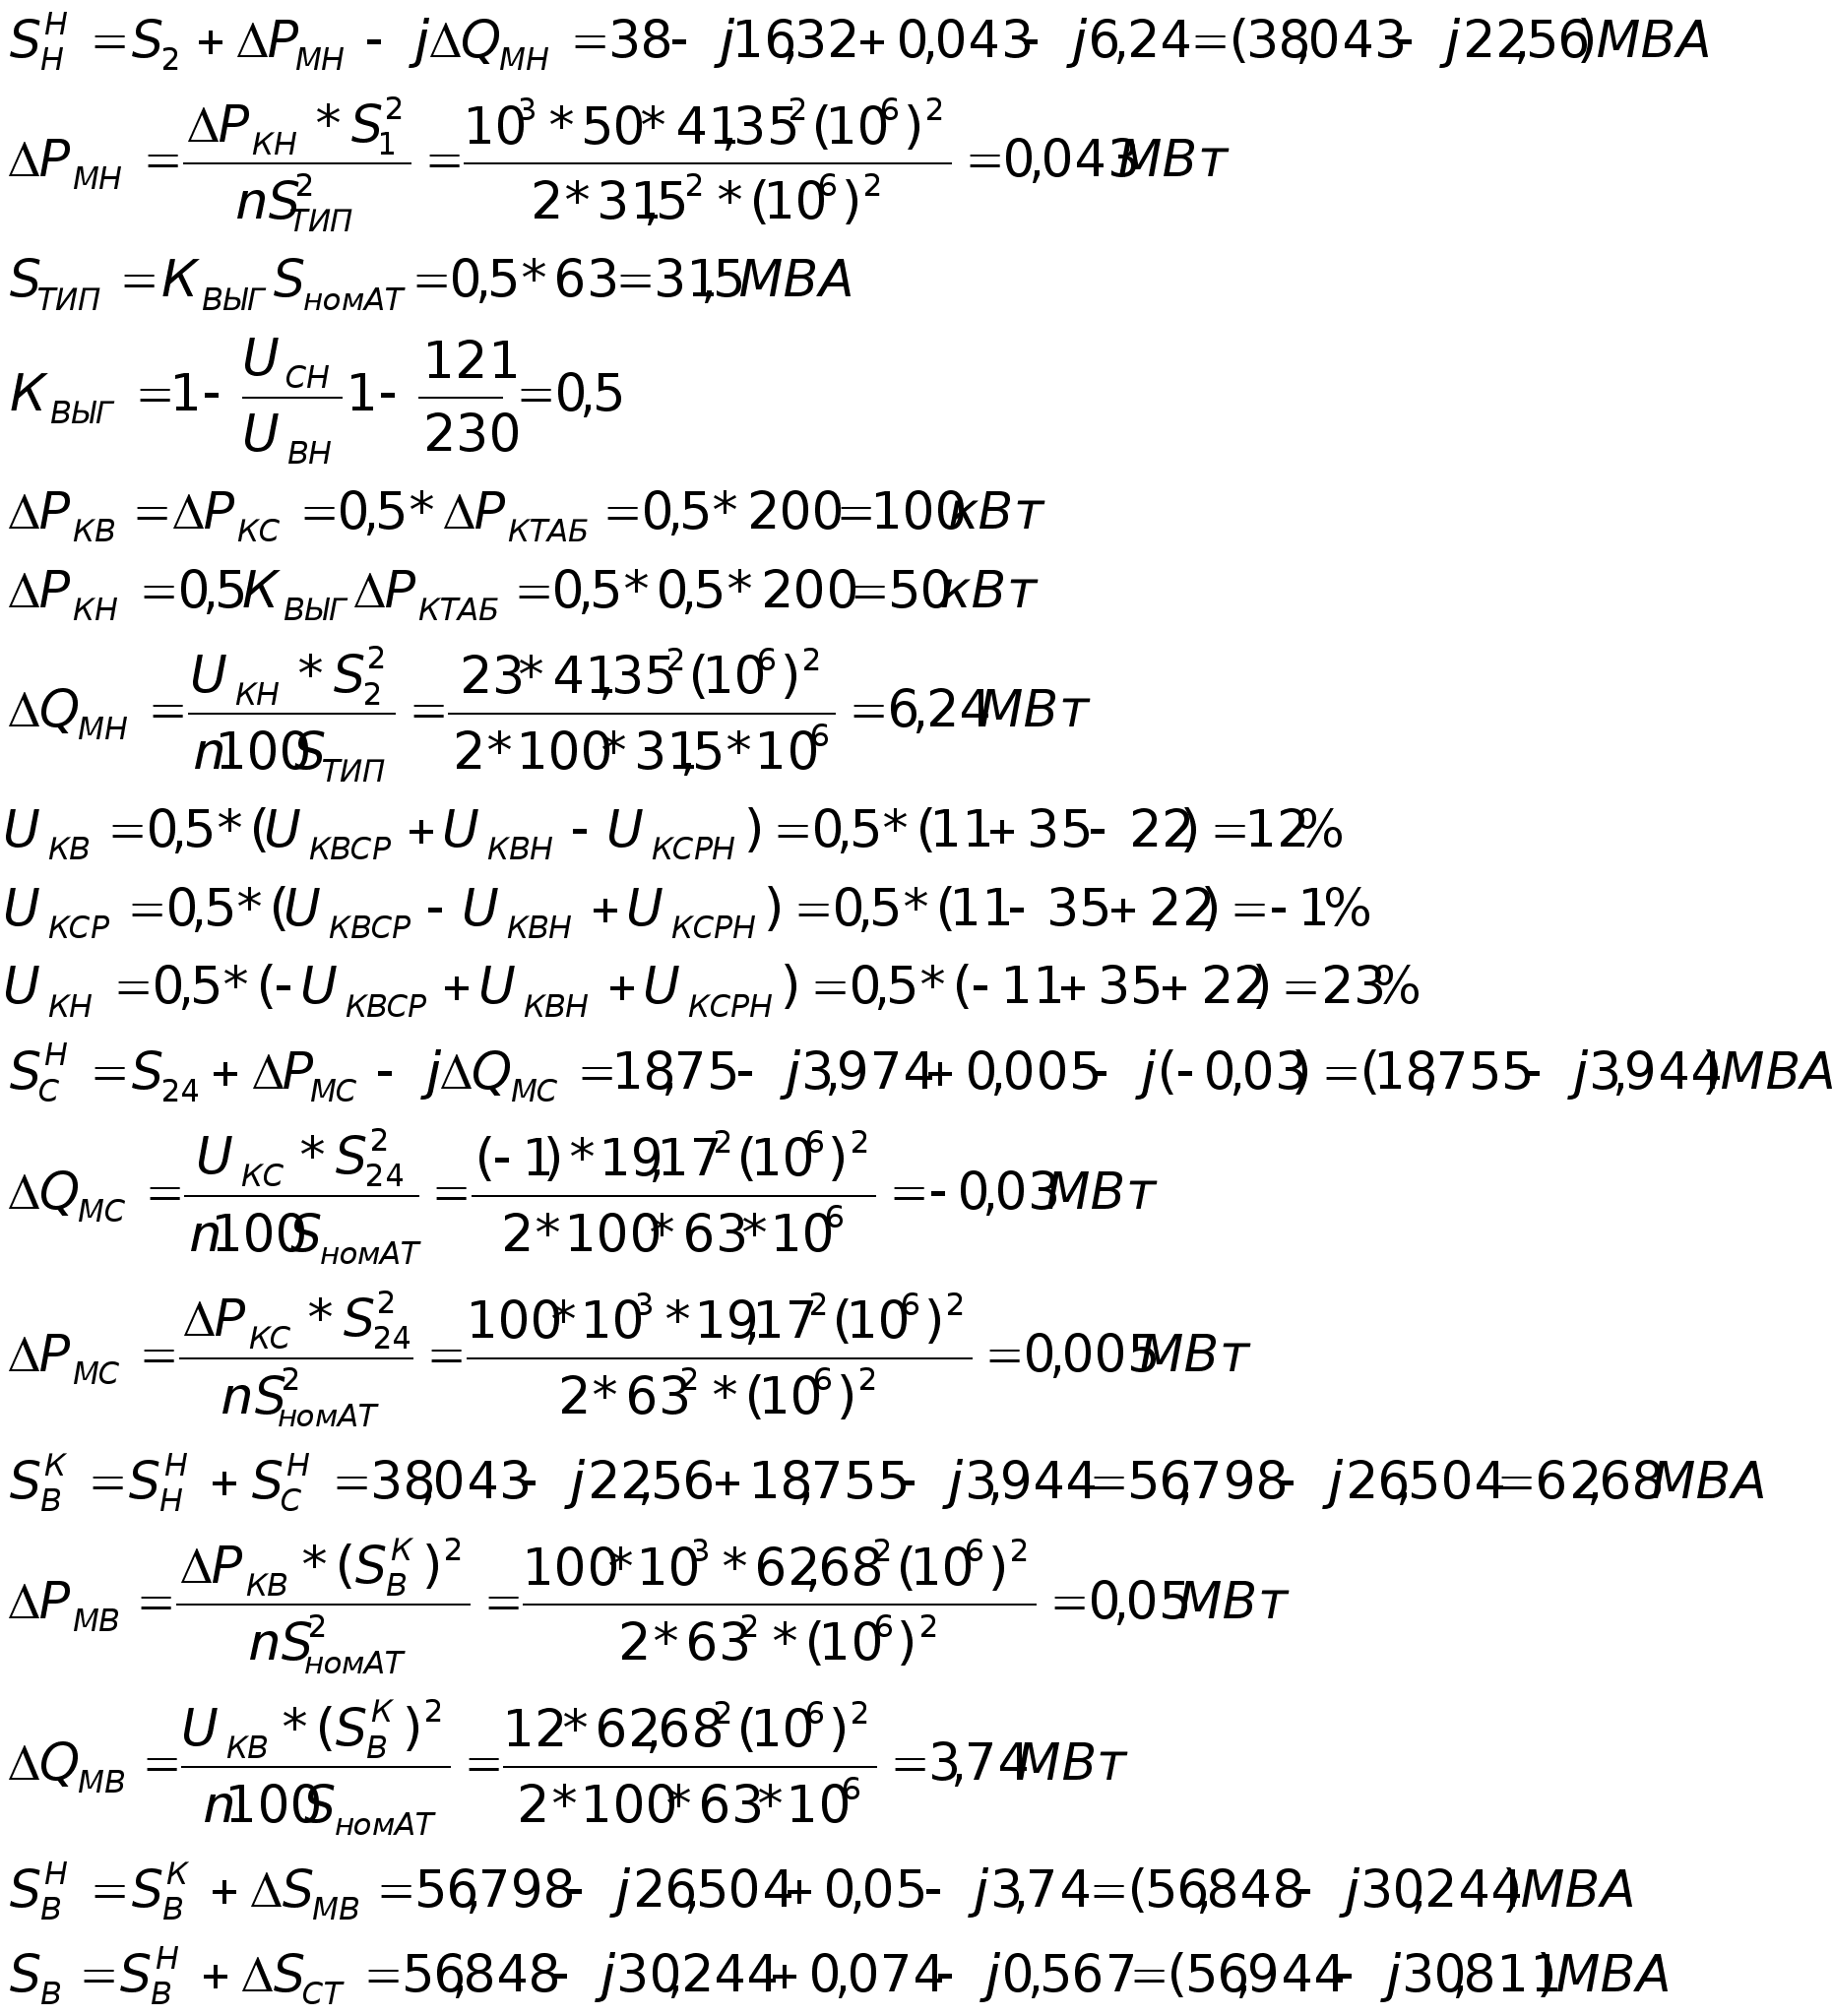 S_Н^Н = S_2 + ΔP_МН - jΔQ_МН = 38 - j16,32 + 0,043 - j6,24 = (38,043 - j22,56)МВА
ΔP_МН = (ΔP_КН * S_1^2)/(nS_ТИП^2) = (10^3 * 50 * 41,35^2(10^6)^2)/(2 * 31,5^2 * (10^6)^2) = 0,043МВт
S_ТИП = К_ВЫГ S_номАТ = 0,5 * 63 = 31,5МВА
К_ВЫГ = 1 - U_СН/U_ВН 1 - 121/230 = 0,5
ΔP_КВ = ΔP_КС = 0,5 * ΔP_КТАБ = 0,5 * 200 = 100кВт
ΔP_КН = 0,5К_ВЫГ ΔP_КТАБ = 0,5 * 0,5 * 200 = 50кВт
ΔQ_МН = (U_КН * S_2^2)/(n100S_ТИП) = (23 * 41,35^2(10^6)^2)/(2 * 100 * 31,5 * 10^6) = 6,24МВт
U_КВ = 0,5 * (U_КВСР + U_КВН - U_КСРН) = 0,5 * (11 + 35 - 22) = 12%
U_КСР = 0,5 * (U_КВСР - U_КВН + U_КСРН) = 0,5 * (11 - 35 + 22) = -1%
U_КН = 0,5 * (-U_КВСР + U_КВН + U_КСРН) = 0,5 * (-11 + 35 + 22) = 23%
S_С^Н = S_24 + ΔP_МС - jΔQ_МС = 18,75 - j3,974 + 0,005 - j(-0,03) = (18,755 - j3,944)МВА
ΔQ_МС = (U_КС * S_24^2)/(n100S_номАТ) = ((-1) * 19,17^2(10^6)^2)/(2 * 100 * 63 * 10^6) = -0,03МВт
ΔP_МС = (ΔP_КС * S_24^2)/(nS_номАТ^2) = (100 * 10^3 * 19,17^2(10^6)^2)/(2 * 63^2 * (10^6)^2) = 0,005МВт
S_В^К = S_Н^Н + S_С^Н = 38,043 - j22,56 + 18,755 - j3,944 = 56,798 - j26,504 = 62,68МВА
ΔP_МВ = (ΔP_КВ * (S_В^К)^2)/(nS_номАТ^2) = (100 * 10^3 * 62,68^2(10^6)^2)/(2 * 63^2 * (10^6)^2) = 0,05МВт
ΔQ_МВ = (U_КВ * (S_В^К)^2)/(n100S_номАТ) = (12 * 62,68^2(10^6)^2)/(2 * 100 * 63 * 10^6) = 3,74МВт
S_В^Н = S_В^К + ΔS_МВ = 56,798 - j26,504 + 0,05 - j3,74 = (56,848 - j30,244)МВА
S_В = S_В^Н + ΔS_СТ = 56,848 - j30,244 + 0,074 - j0,567 = (56,944 - j30,811)МВА